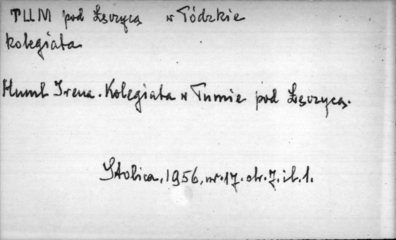 TUM pod Łęczycą w Łódzkie
kolegiata
Huml Irena. Kolegiata w Tumie pod Łęczycą.
Stolica, 1956, nr. 17. str. 7. il. 1.